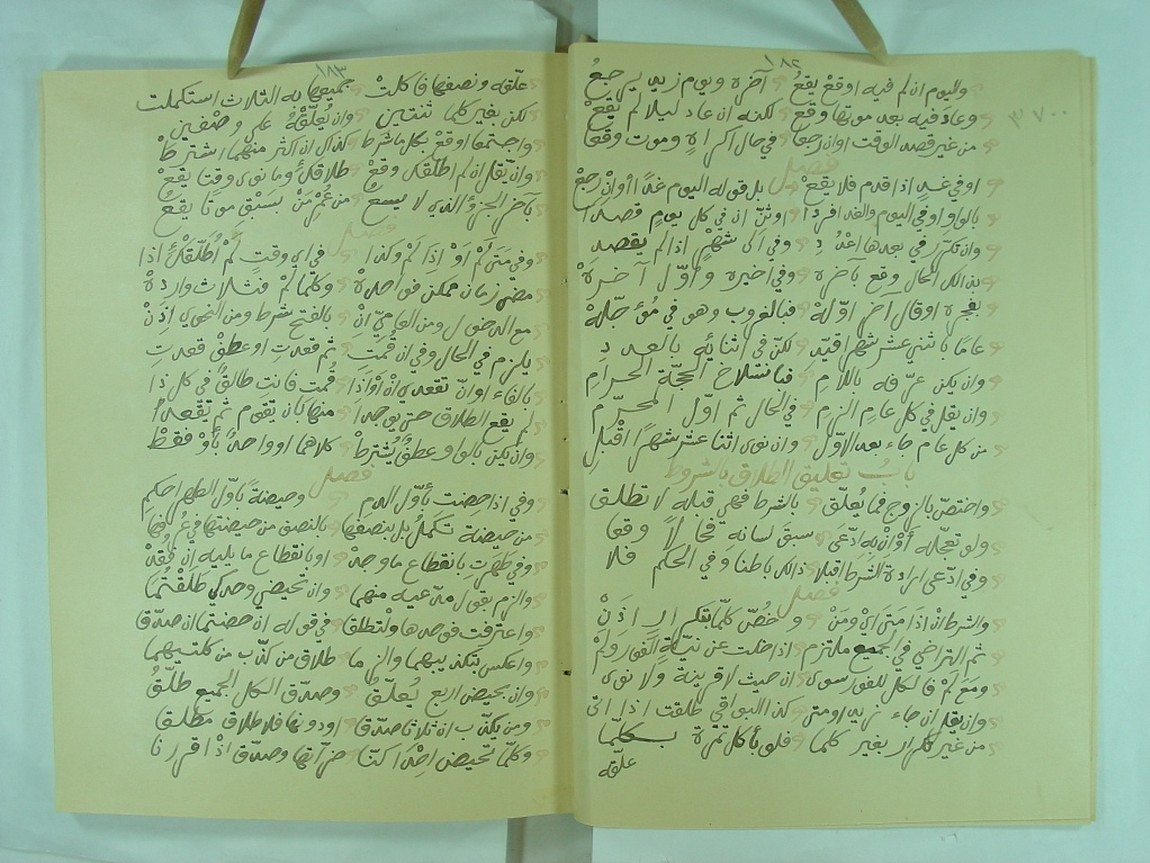 ١٨٢
واليوم ان لم فيه اوقع يقع آخره ويوم زيد يرجع
وعاد فيه بعد موتها وقع لكنه ان عاد ليلا لم يقع
من غير قصد الوقت اوان رجعا في حال اكراه وموت وقعا
فصل
او في غد اذا قدم فلا يقع بل قوله اليوم غدا أوان رجع
بالواو او في اليوم والغد افردا اوثن ان في كل يوم قصدا
وان تكرر في بعدها اعدد وفي الى شهر اذا لم يقصد
بذلك الحال وقع بآخره وفي اخيره واول آخره
بفجره او قال آخر اوله فبالغروب وهو في مؤجله
عاما باثني عشر شهرا قيد لكن في اثنائه بالعدد
وان يكن عرفه باللام فبانسلاخ الحجة الحرام
وان يقل في كل عام الزم في الحال ثم اول المحرم
من كل عام جاء بعد الاول وان نوى اثنا عشر شهرا اقبل
باب تعليق الطلاق بالشروط
واختص بالزوج فما يعلق بالشرط فهي قبله لا تطلق
ولو تعجله أوان به ادعى سبق لسانه فحالا وقعا
وفي ادعى ارادة الشرط اقبلا ذالك باطنا وفي الحكم فلا
فصل
والشرط ان اذا متى اي ومن وخص كلما بتكرار اذن
ثم التراخي في الجميع ملتزم اذا خلت عن نية الفور ولم
ومع لم فالكل للفور سوى ان حيث لا قرينة ولا نوى
وان يقل ان جاء زيد او متى كذا البواقي طلقت اذا اتى
من غير تكرار بغير كلما فلو بأكل تمرة بكلما
علقه
١٨٣
علقه ونصفها فاكلت جميعها به الثلاث استكملت
لكن بغير كلما ثنتين وان يعلقه على وصفين
واجتمعا اوقع بكل ما شرط كذاك ان اكثر منهما اشترط
وان يقل ان لم اطلقك وقع طلاقك وما نوى وقتا يقع
بآخر الجزؤ الذي لا يسع من عمر من بسبق موتا يقع
فصل
وفي متى لم أو إذا لم وكذا في اي وقت لم أطلقك اذا
مضى زمان ممكن فواحده وكلما لم فثلاث وارده
مع الدخول ومن العامي ان بالفتح شرط ومن النحوي اذن
يلزم في الحال وفي ان قمت ثم قعدت او عطف قعدت
بالفاء اوان تقعدي ان أو اذا قمت فانت طالق في كل ذا
لم يقع الطلاق حتى يوجدا منها كان يقوم ثم تقعدا
وان يكن بالواو عطف يشترط كلاهما او واحد بأو فقط
فصل
وفي اذا حضت بأول الدم وحيضة باول الطهر احكم
من حيضة تكمل بل بنصفها بالنصف من حيضتها في عرفها
وفي طهرت بانقطاع ما وجد او بانقطاع ما يليه ان فقد
والزم بقول مدعيه منهما وان تحيضي وحدكي طلقتما
واعترفت فوحدها ولتطلقا في قوله ان حضتما ان صدقا
واعكس بتكذيبهما والزما طلاق من كذب من كلتيهما
وان بحيض اربع يعلق وصدق الكل الجميع طلق
ومن يكذب ان ثلاثا صدقا او دونها فلا طلاق مطلقا
وكلما تحيض احداكنا ضراتها وصدق اذ اقررنا